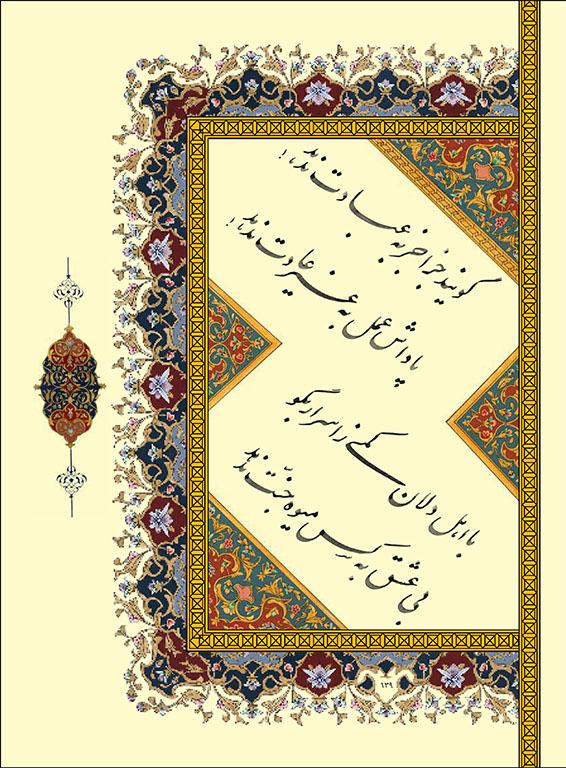 گویند جزا جز به عبادت ندهند!
پاداش عمل به غیر عادت ندهند!
با اهل دلان کمی ز اسرار بگو
بی عشق به کس میوه جنت ندهند
۱۳۹